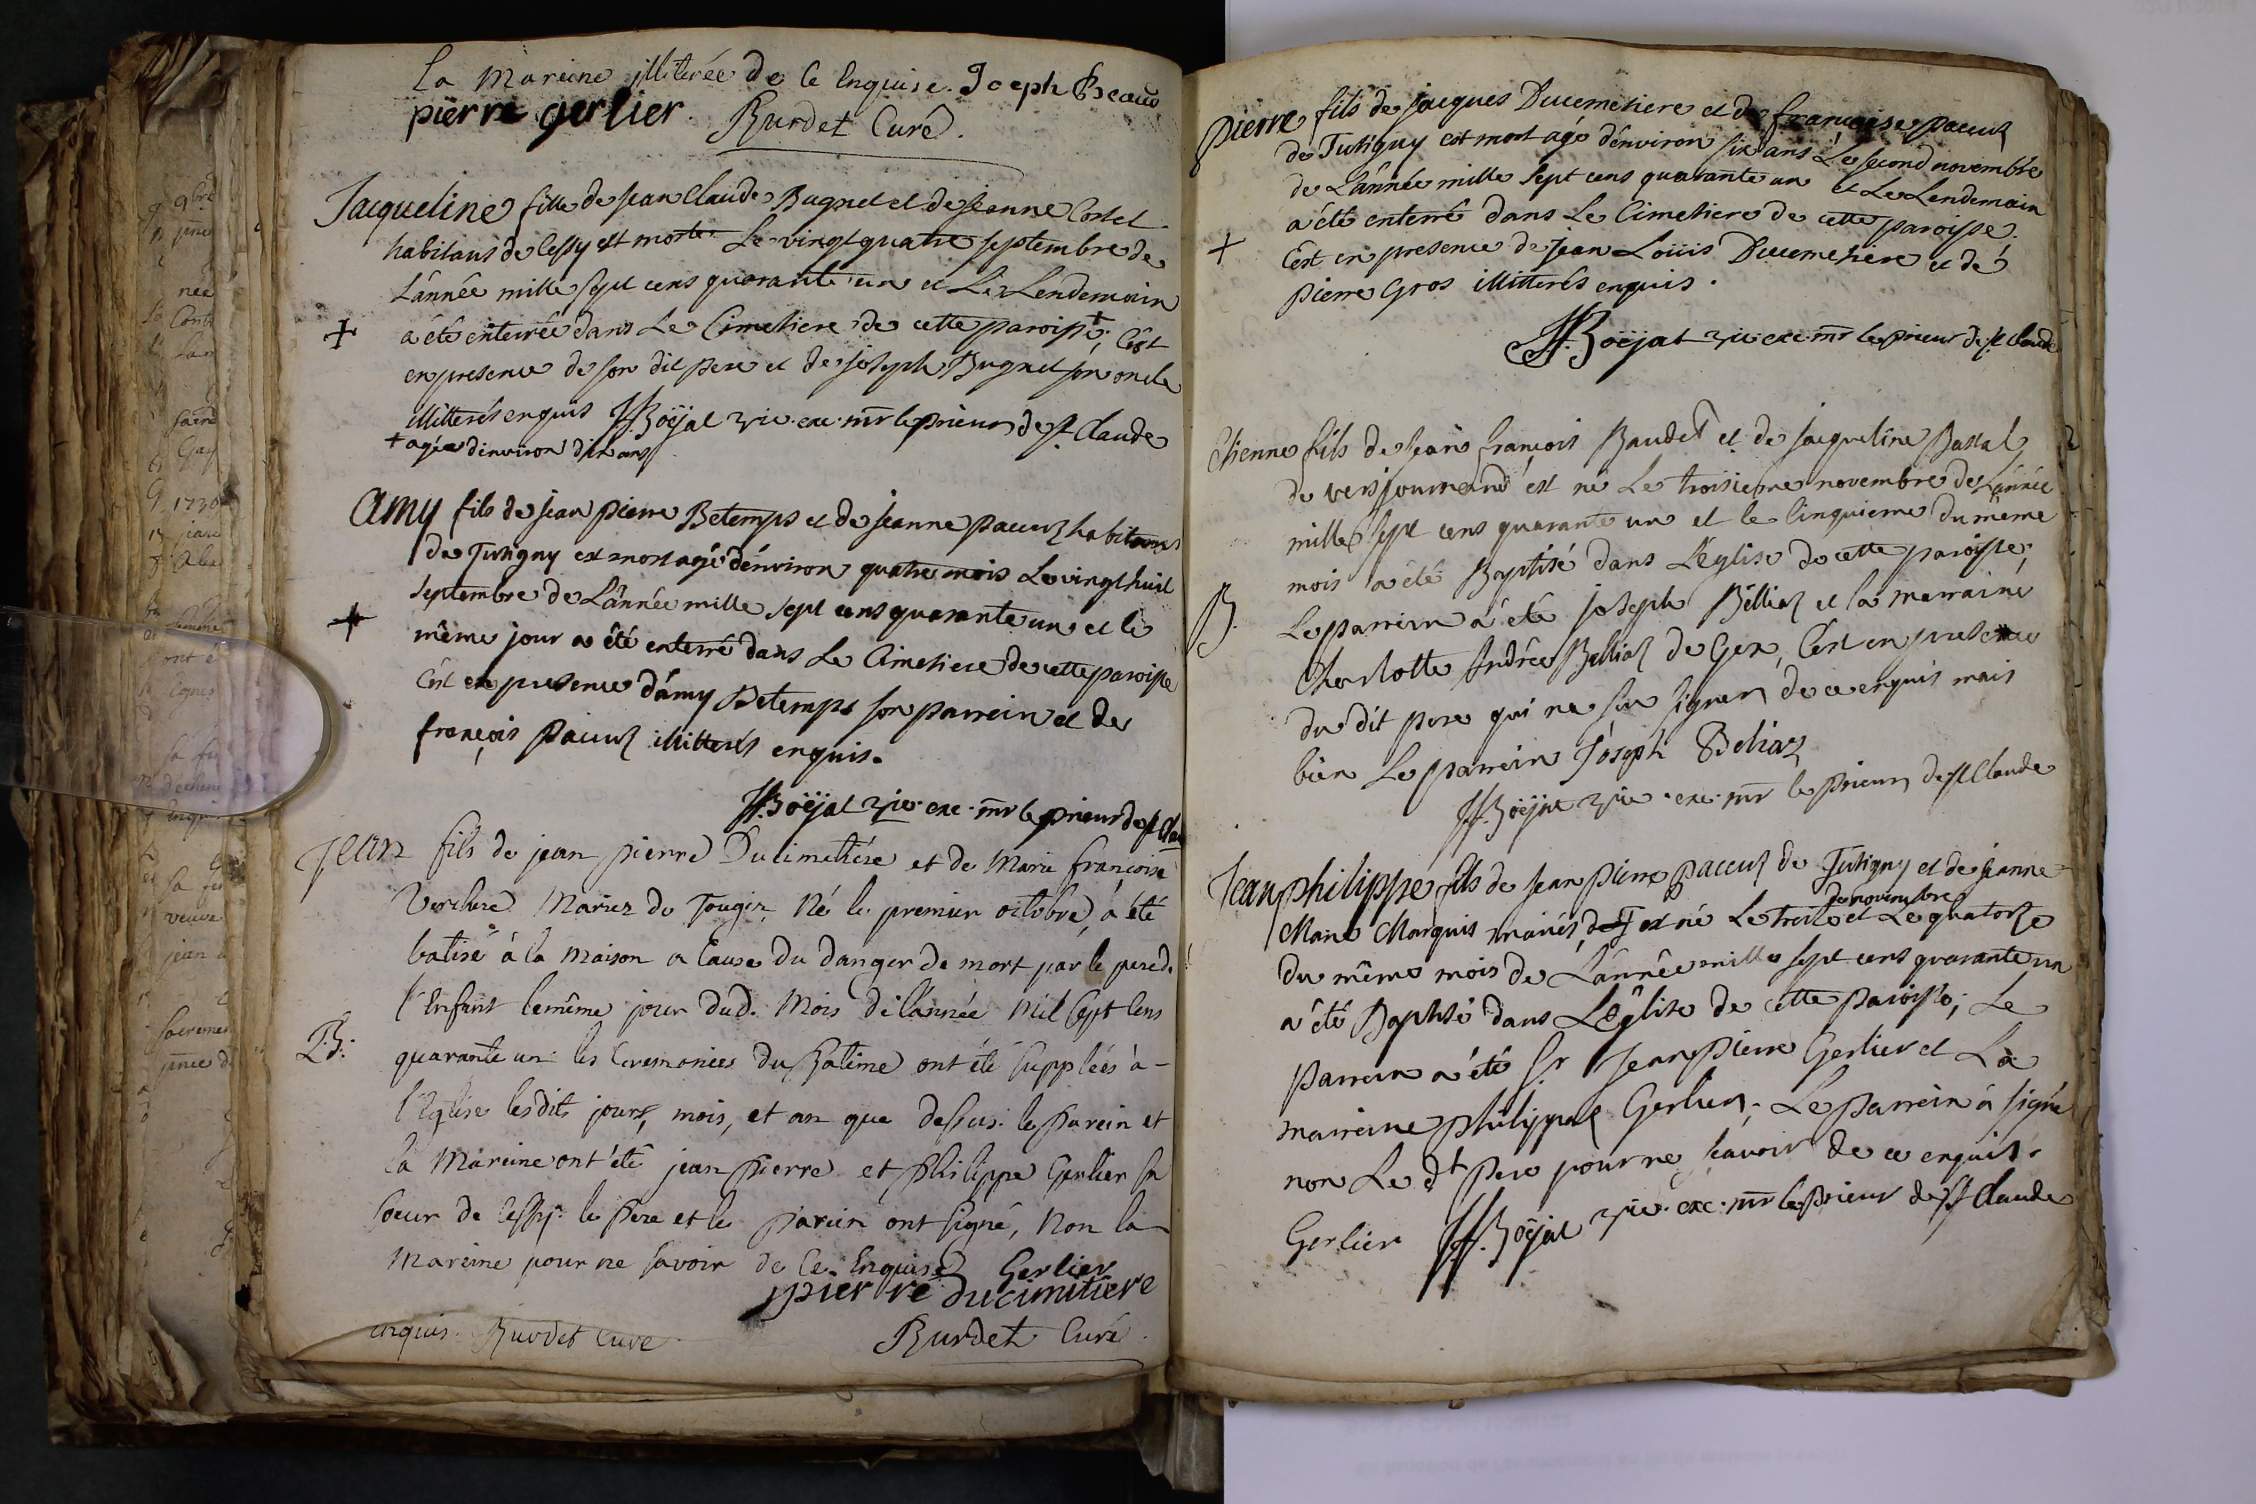 la Mareine illiterée de ce Enquise. Joseph Beaud
pierre gerlier. Burdet Curé.
Jacqueline fille de Jean Claude Bugnet et de Jeanne Costet
habitans de Cessy est morte Le vingt quatre septembre de
L'année mille sept cens quarante un et Le Lendemain
+ a été enterrée dans Le Cimetiere de cette paroisse + C'est
en presence de son dit pere et de joseph Bugnet son oncle
illitterés enquis Boëjat vic. exc. mr le prieur de st Claude
+ agée d'environ dix ans
Amy fils de jean pierre Betemps et de jeanne paccuz habitans
de Tutigny est mort agé d'environ quatre mois Le vingt huit
septembre de L'année mille sept cens quarante un et le
+ même jour a été enterré dans Le Cimetiere de cette paroisse
C'est en presence d'amy Betemps son parrein et de
françois Paccuz illitterés enquis.
Boëjat vic. exc. mr le prieur de st Clau
Jean fils de jean pierre Ducimetiére et de Marie françoise
Verchere Mariez de Tougin, Né le premier octobre, a été
batisé à la maison a Cause du danger de mort par le pere de
l'Enfant le même jour dud. Mois de l'année Mil sept Cens
B. quarante un. les Ceremonies du Batême ont été supplées à
l'Eglise lesdits jours, mois, et an que dessus. le Parein et
la Mareine ont été jean Pierre et Philippe Gerlier sa
soeur de Cessy. le Pere et le Parein ont signé, Non la
Mareine pour ne savoir de Ce Enquise Gerlier
pierre ducimitiere
enquis. Burdet Curé Burdet Curé.
pierre fils de jacques Ducimetiere et de françoise paccuz
de Tutigny est mort agé d'environ six ans Le second novembre
de L'année mille sept cens quarante un et Le Lendemain
a été enterré dans Le Cimetiere de cette paroisse.
+ C'est en presence de Jean Loüis Ducimetiere et de
pierre Gros illitterés enquis.
Boëjat vic. exc. mr le prieur de st Claude
Etienne fils de Jean françois Baudet et de Jacqueline Bastal
de vers journand est né Le troisieme novembre de L'année
mille sept cens quarante un et le Cinquieme du même
mois a été Baptisé dans L'église de cette paroisse;
B. Le parrein a été joseph Belliaz et la marraine
Charlotte Andrée Belliaz de Gex, C'est en presence
du dit pere qui ne su signer de ce enquis mais
bien Le parrein Joseph Beliaz
Boëjat vic. exc. mr le prieur de st Claude
Jean philippe fils de Jean pierre paccuz de Tutigny et de jeanne
de novembre
Marie Marquis mariés, est né Le treize et Le quatorze
du même mois de L'année mille sept cens quarante un
a été Baptisé dans L'église de cette paroisse; Le
parrein a été Sr Jean pierre Gerlier et La
marreine philippe Gerlier. Le parrein a signé
non Le dt pere pour ne sçavoir de ce enquis.
Gerlier Boëjat vic. exc. mr le prieur de st Claude